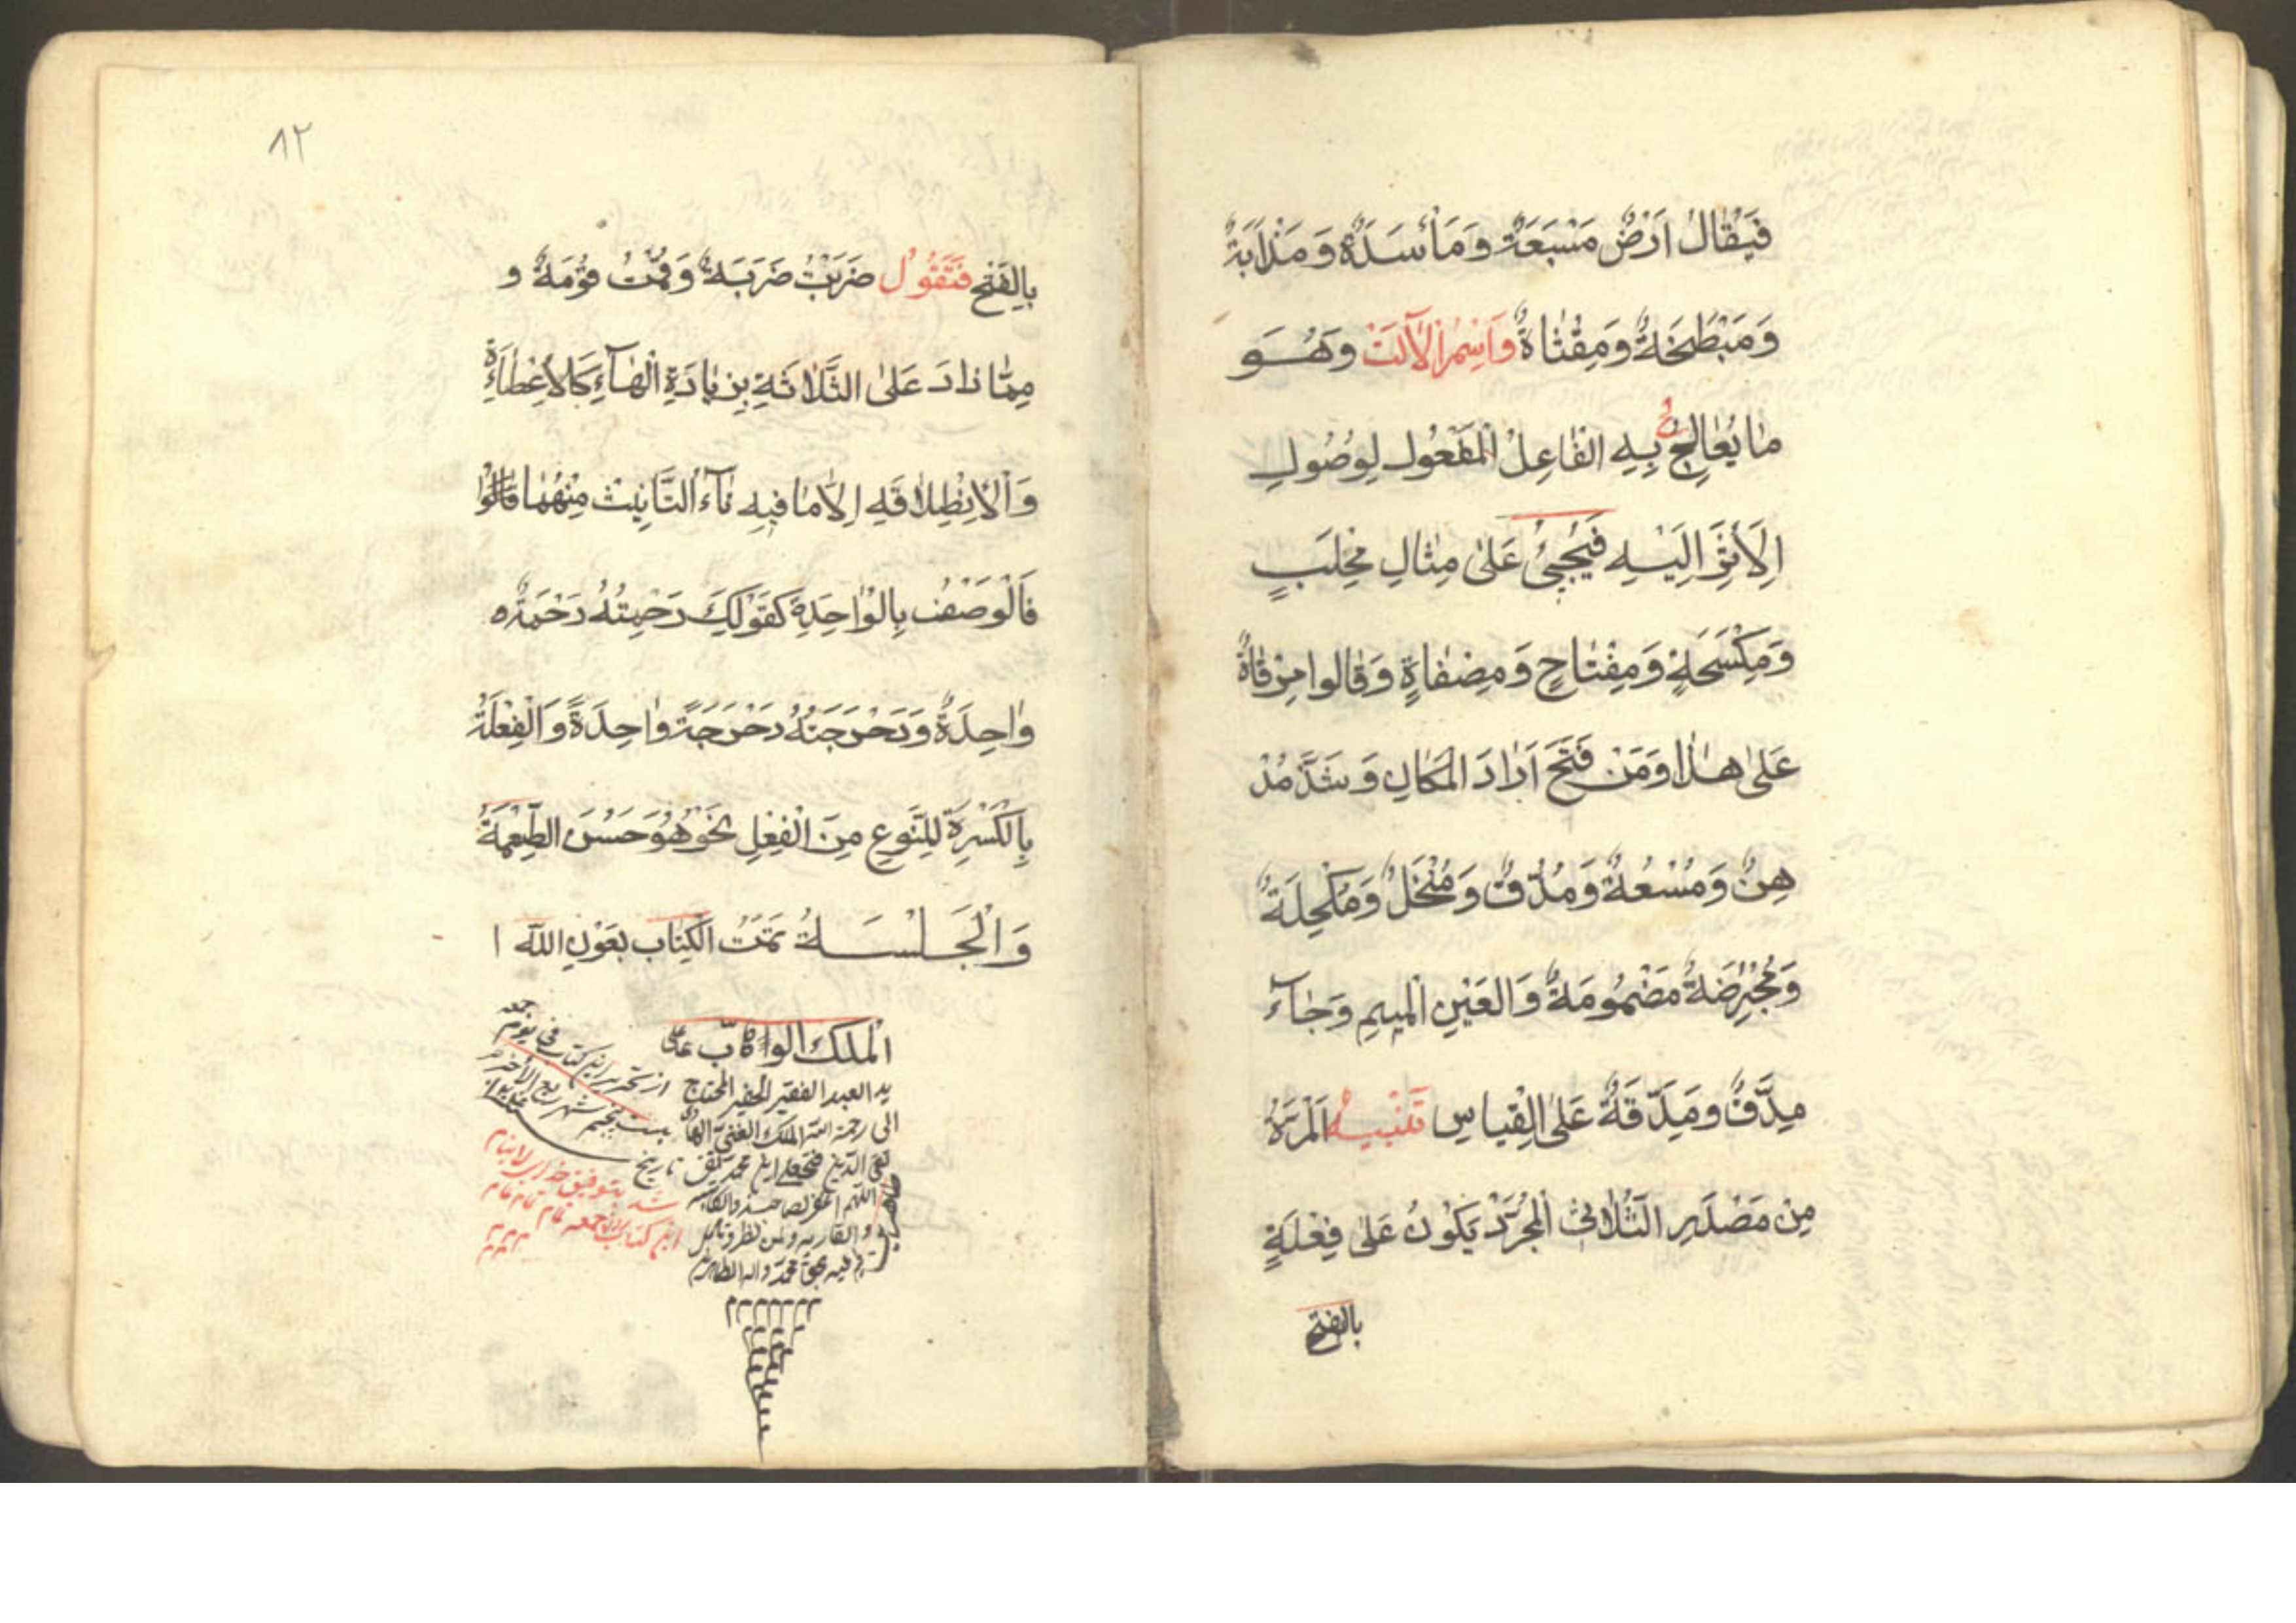 فَيُقَالُ اَرْضٌ مَسْبَعَةٌ وَمَأْسَدَةٌ وَمَذْاَبَةٌ
وَمَبْطَخَةٌ وَمِقْثَاةٌ وَاَسْمُ الْآلَتْ وَهُوَ
مٰا يُعٰالِجُ بِهِ الفٰاعِلُ الْمَفْعُولَ لِوُصُولِ
اِلَأثَرِ اِلَيْهِ فَيُجِئُ عَلىٰ مِثالِ مِحْلَبٍ
وَمِكْسَحَةٍ وَمِفْتٰاحٍ وَمِصْفٰاةٍ وَقٰالوا مِرْقٰاةٌ
عَلىٰ هٰذا وَمَنْ فَتَحَ اَرٰادَ الْمَكٰانِ وَشَذَّ مُدْ
هِنٌ وَمُسْعُطٌ وَمُدُقٌ وَمُنْخَلٌ وَمُكْحِلَةٌ
وَمُحْرِضَةٌ مَضْمُومَةٌ وَالعَيْنِ الْمِيمِ وَجٰاءَ
مِدَّقٌ وَمَدِّقَةٌ عَلَى الْقِياسِ تَنْبِيهٌ اَلْمَرَّةُ
مِنْ مَصْدَرِ الثُّلٰاثِى الْمُجَرَّدْ يَكُونُ عَلىٰ فِعْلَةٍ
بالفتح
٨٢
بِالفَتْحِ فَتَقُوُلُ ضَرَبْتُ ضَرَبَةً وَقُمْتُ قُوْمَةً و
مِمّٰا زٰادَ عَلىٰ الثَّلٰاثَةِ بِزِيٰادَةِ الْهٰآءِ كَالاِعْطٰاءَةِ
وَالْاِنْطِلٰاقَةِ اِلّٰا مٰا فيهِ تٰآءُ التَّانِيث مِنْهُمٰا
فَالْوَصْفُ بِالْوٰاحِدِةِ كَقَوْلِكَ رَحِمْتُهُ رَحْمَةً
وٰاحِدَةً وَدَحْرَجْتُهُ دَحْرَجَةً وٰاحِدَةً وَالْفِعْلَةُ
بِالْكَسْرِةِ لِلنَّوعِ مِنَ الْفِعْلِ نَحْوُ هُوَ حَسْنَ الطِّعْمَةُ
وَالْجَلْسَةُ تَمَّتُ الْكِتٰاب بِعَوْنِ اللّه ا
الْملك الوهّاب على
يد العبد الفقير الحقير المحتاج
الى رحمة الله الملك الغنىّ
تقى الدّين ابن محمد تقى
اللّهم اغفر لصاحبه والكاتبه
و القاريه و لمن نظر و تأمل
فيه بحق محمّد واله الطاهرين
از تحرير اين كتاب فى يوم جمعه
بيست پنجم شهر ربيع الآخر
تاريخ
شد بتوفيق خداى لا ينام
اين كتاب تمام تمام تمام